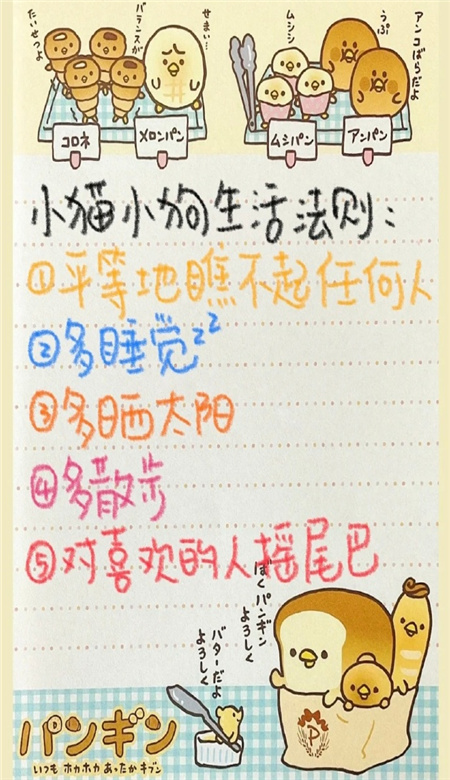 たいせつよ
バランスが
せまい…
ムシシ
うふ
アンコばらだよ
コロネ
メロンパン
ムシパン
アンパン
小猫小狗生活法则:
①平等地瞧不起任何人
②多睡觉zz
③多晒太阳
④多散步
⑤对喜欢的人摇尾巴
ぼくパンギン
よろしく
バターだよ
よろしく
P
パンギン
いつも ホカホカ あったかキブン